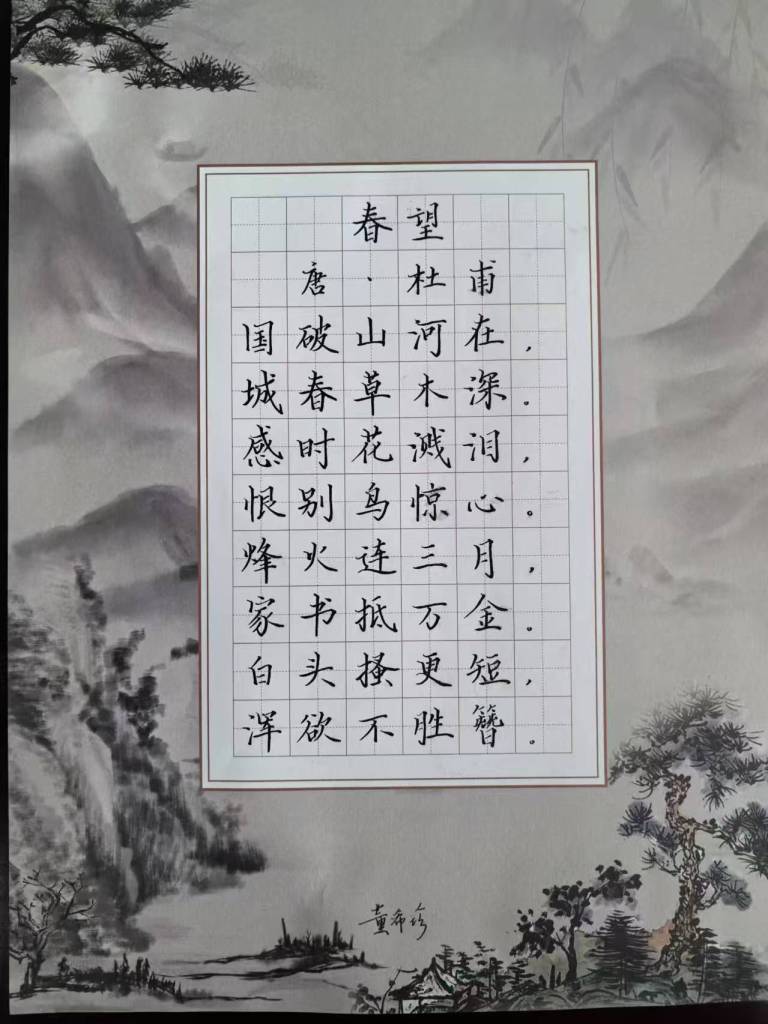 春望
唐·杜甫
国破山河在，
城春草木深。
感时花溅泪，
恨别鸟惊心。
烽火连三月，
家书抵万金。
白头搔更短，
浑欲不胜簪。
童希珍